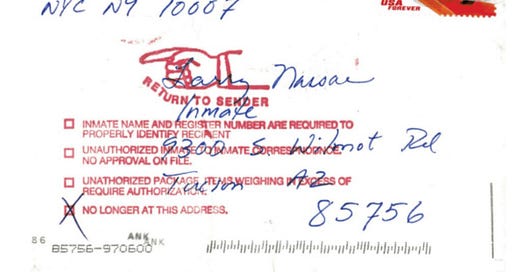 NYC NY 10007
USA
FOREVER
Larry Nassar
RETURN TO SENDER
Inmate
INMATE NAME AND REGISTER NUMBER ARE REQUIRED TO
PROPERLY IDENTIFY RECIPIENT
9300 S. Wilmot Rd
UNAUTHORIZED INMATE TO INMATE CORRESPONDENCE.
NO APPROVAL ON FILE.
UNATHORIZED PACKAGE. ITEMS WEIGHING IN EXCESS OF
REQUIRE AUTHORIZATION.
Tucson AZ
X NO LONGER AT THIS ADDRESS.
85756
86
ANK
ANK
85756-970600